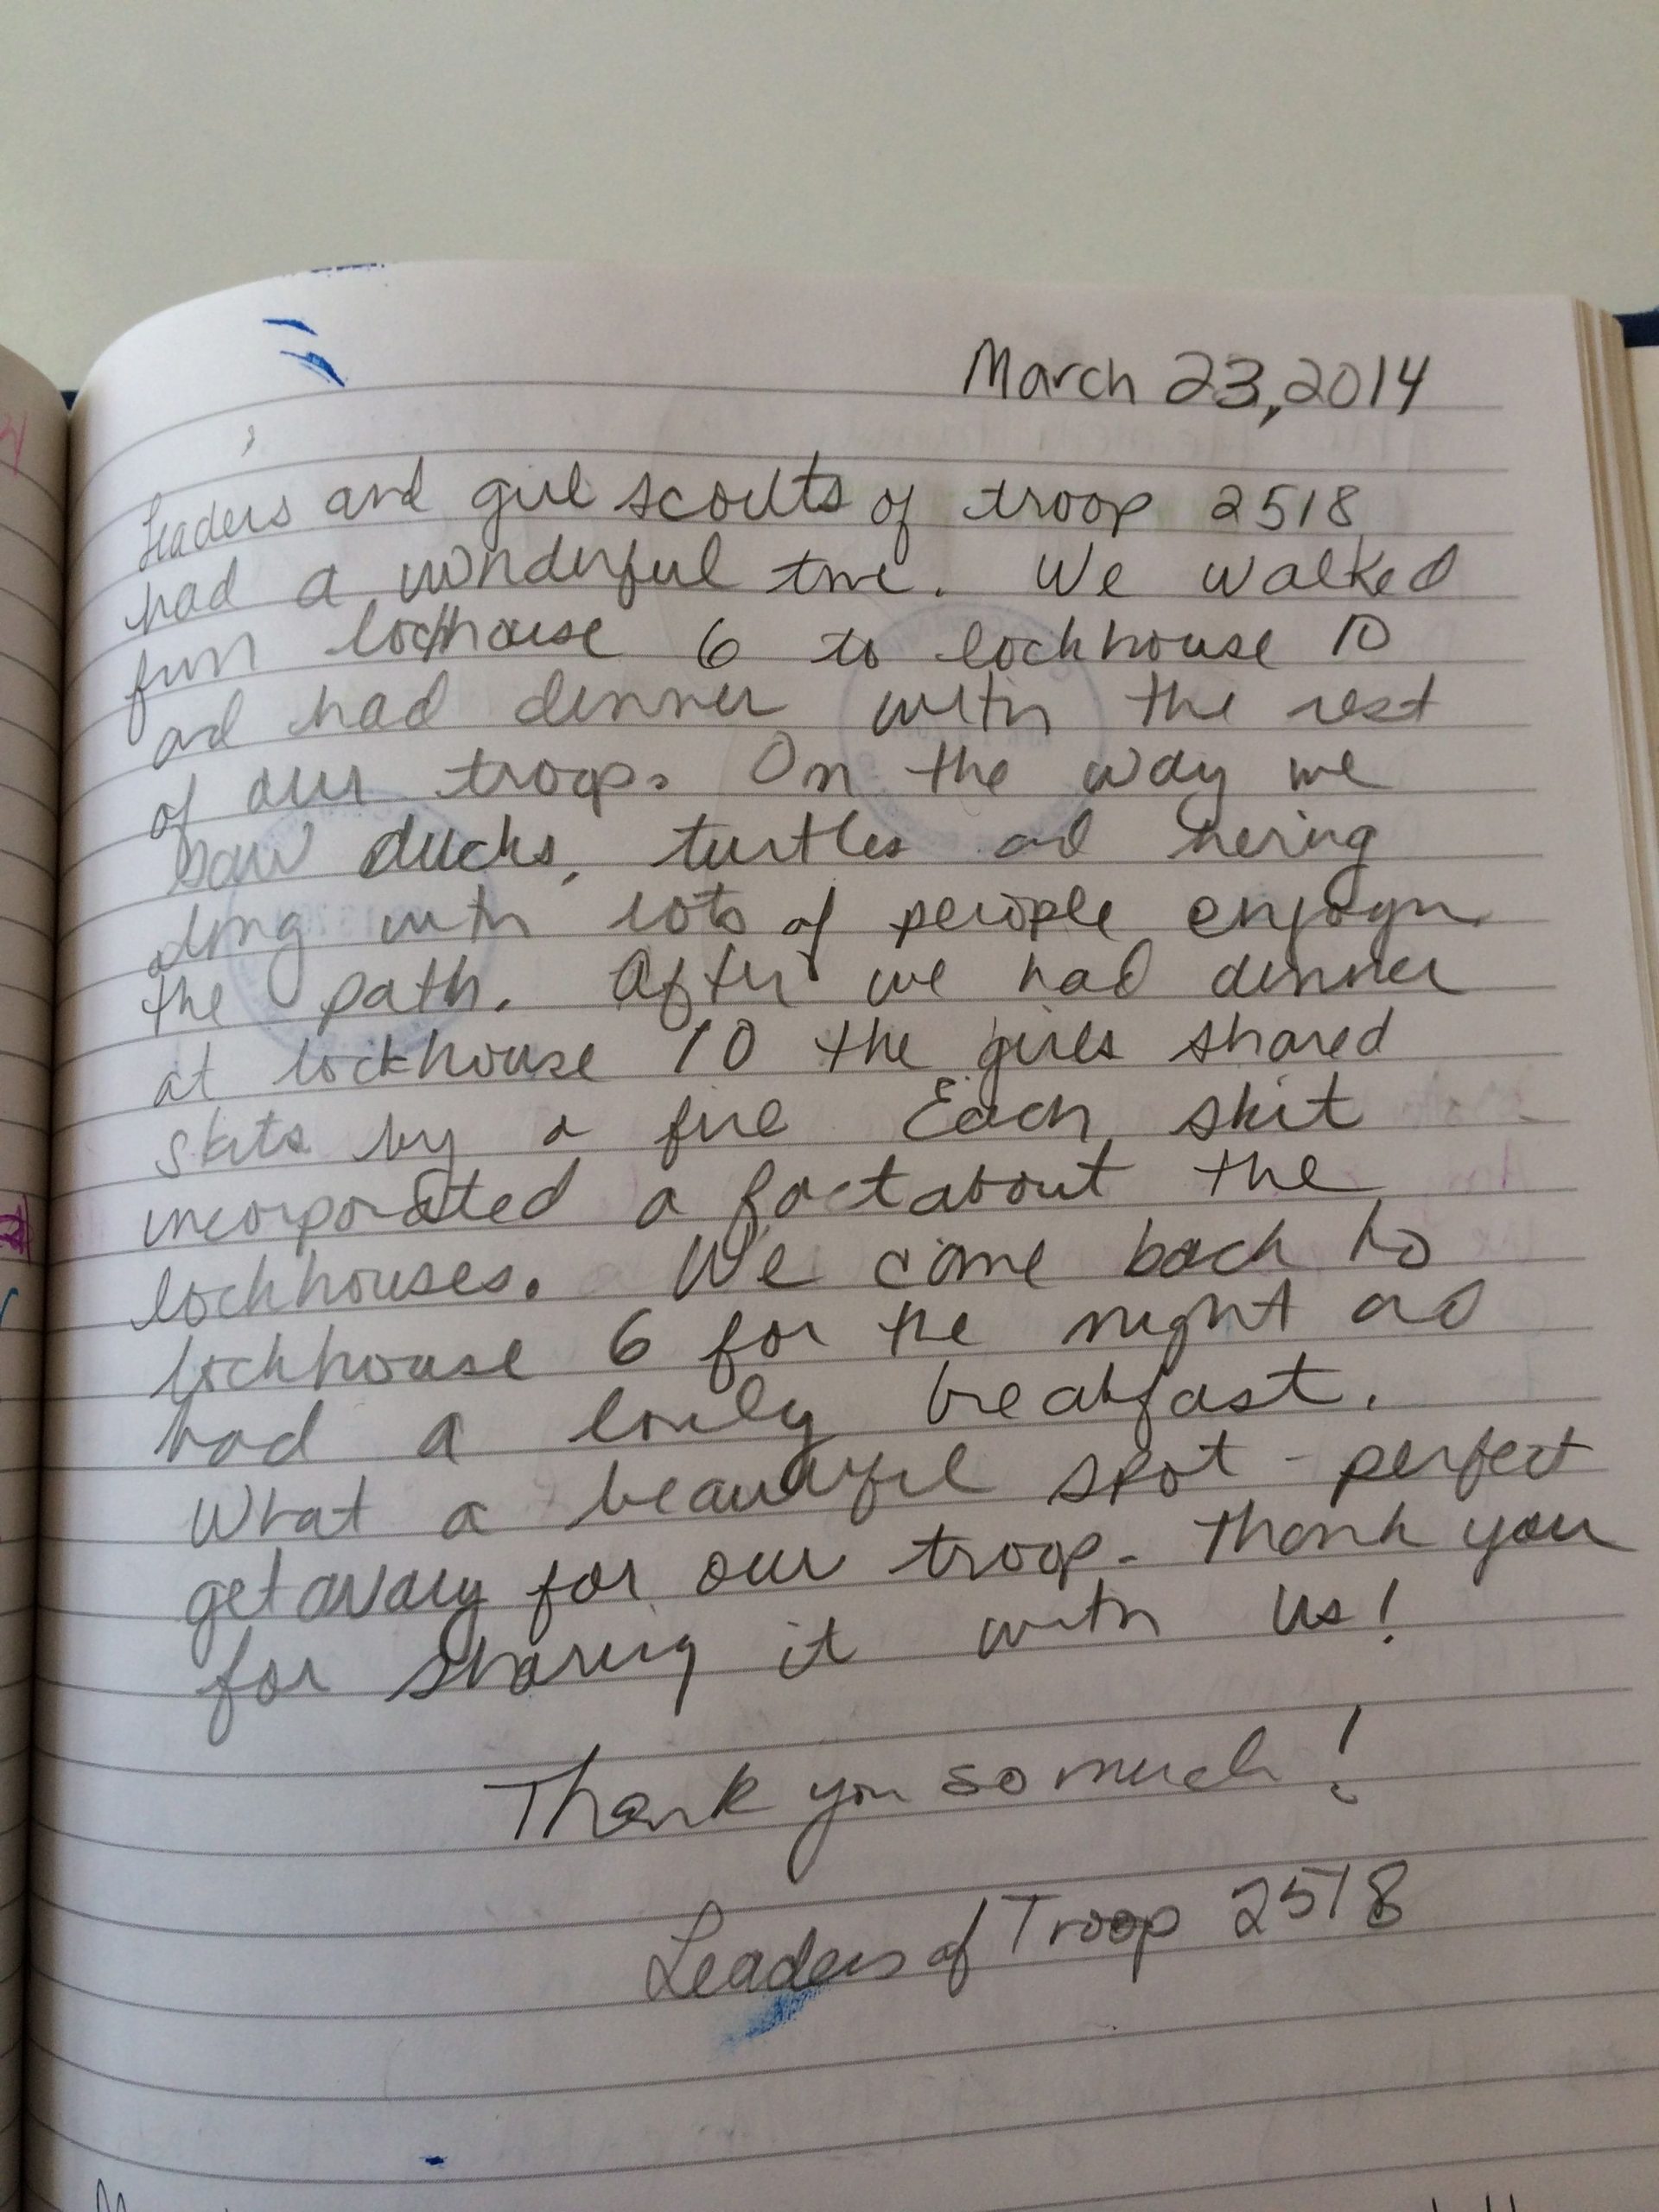 March 23, 2014
Leaders and girl scouts of troop 2518
had a wonderful time. We walked
from lockhouse 6 to lockhouse 10
and had dinner with the rest
of our troop. On the way we
saw ducks, turtles and hering
along with lots of people enjoying
the path. After we had dinner
at lockhouse 10 the girls shared
skits by a fire Each skit
incorporated a fact about the
lockhouses. We came back to
lockhouse 6 for the night and
had a lovely breakfast.
What a beautiful spot - perfect
getaway for our troop. Thank you
for sharing it with us!
Thank you so much!
Leaders of Troop 2518